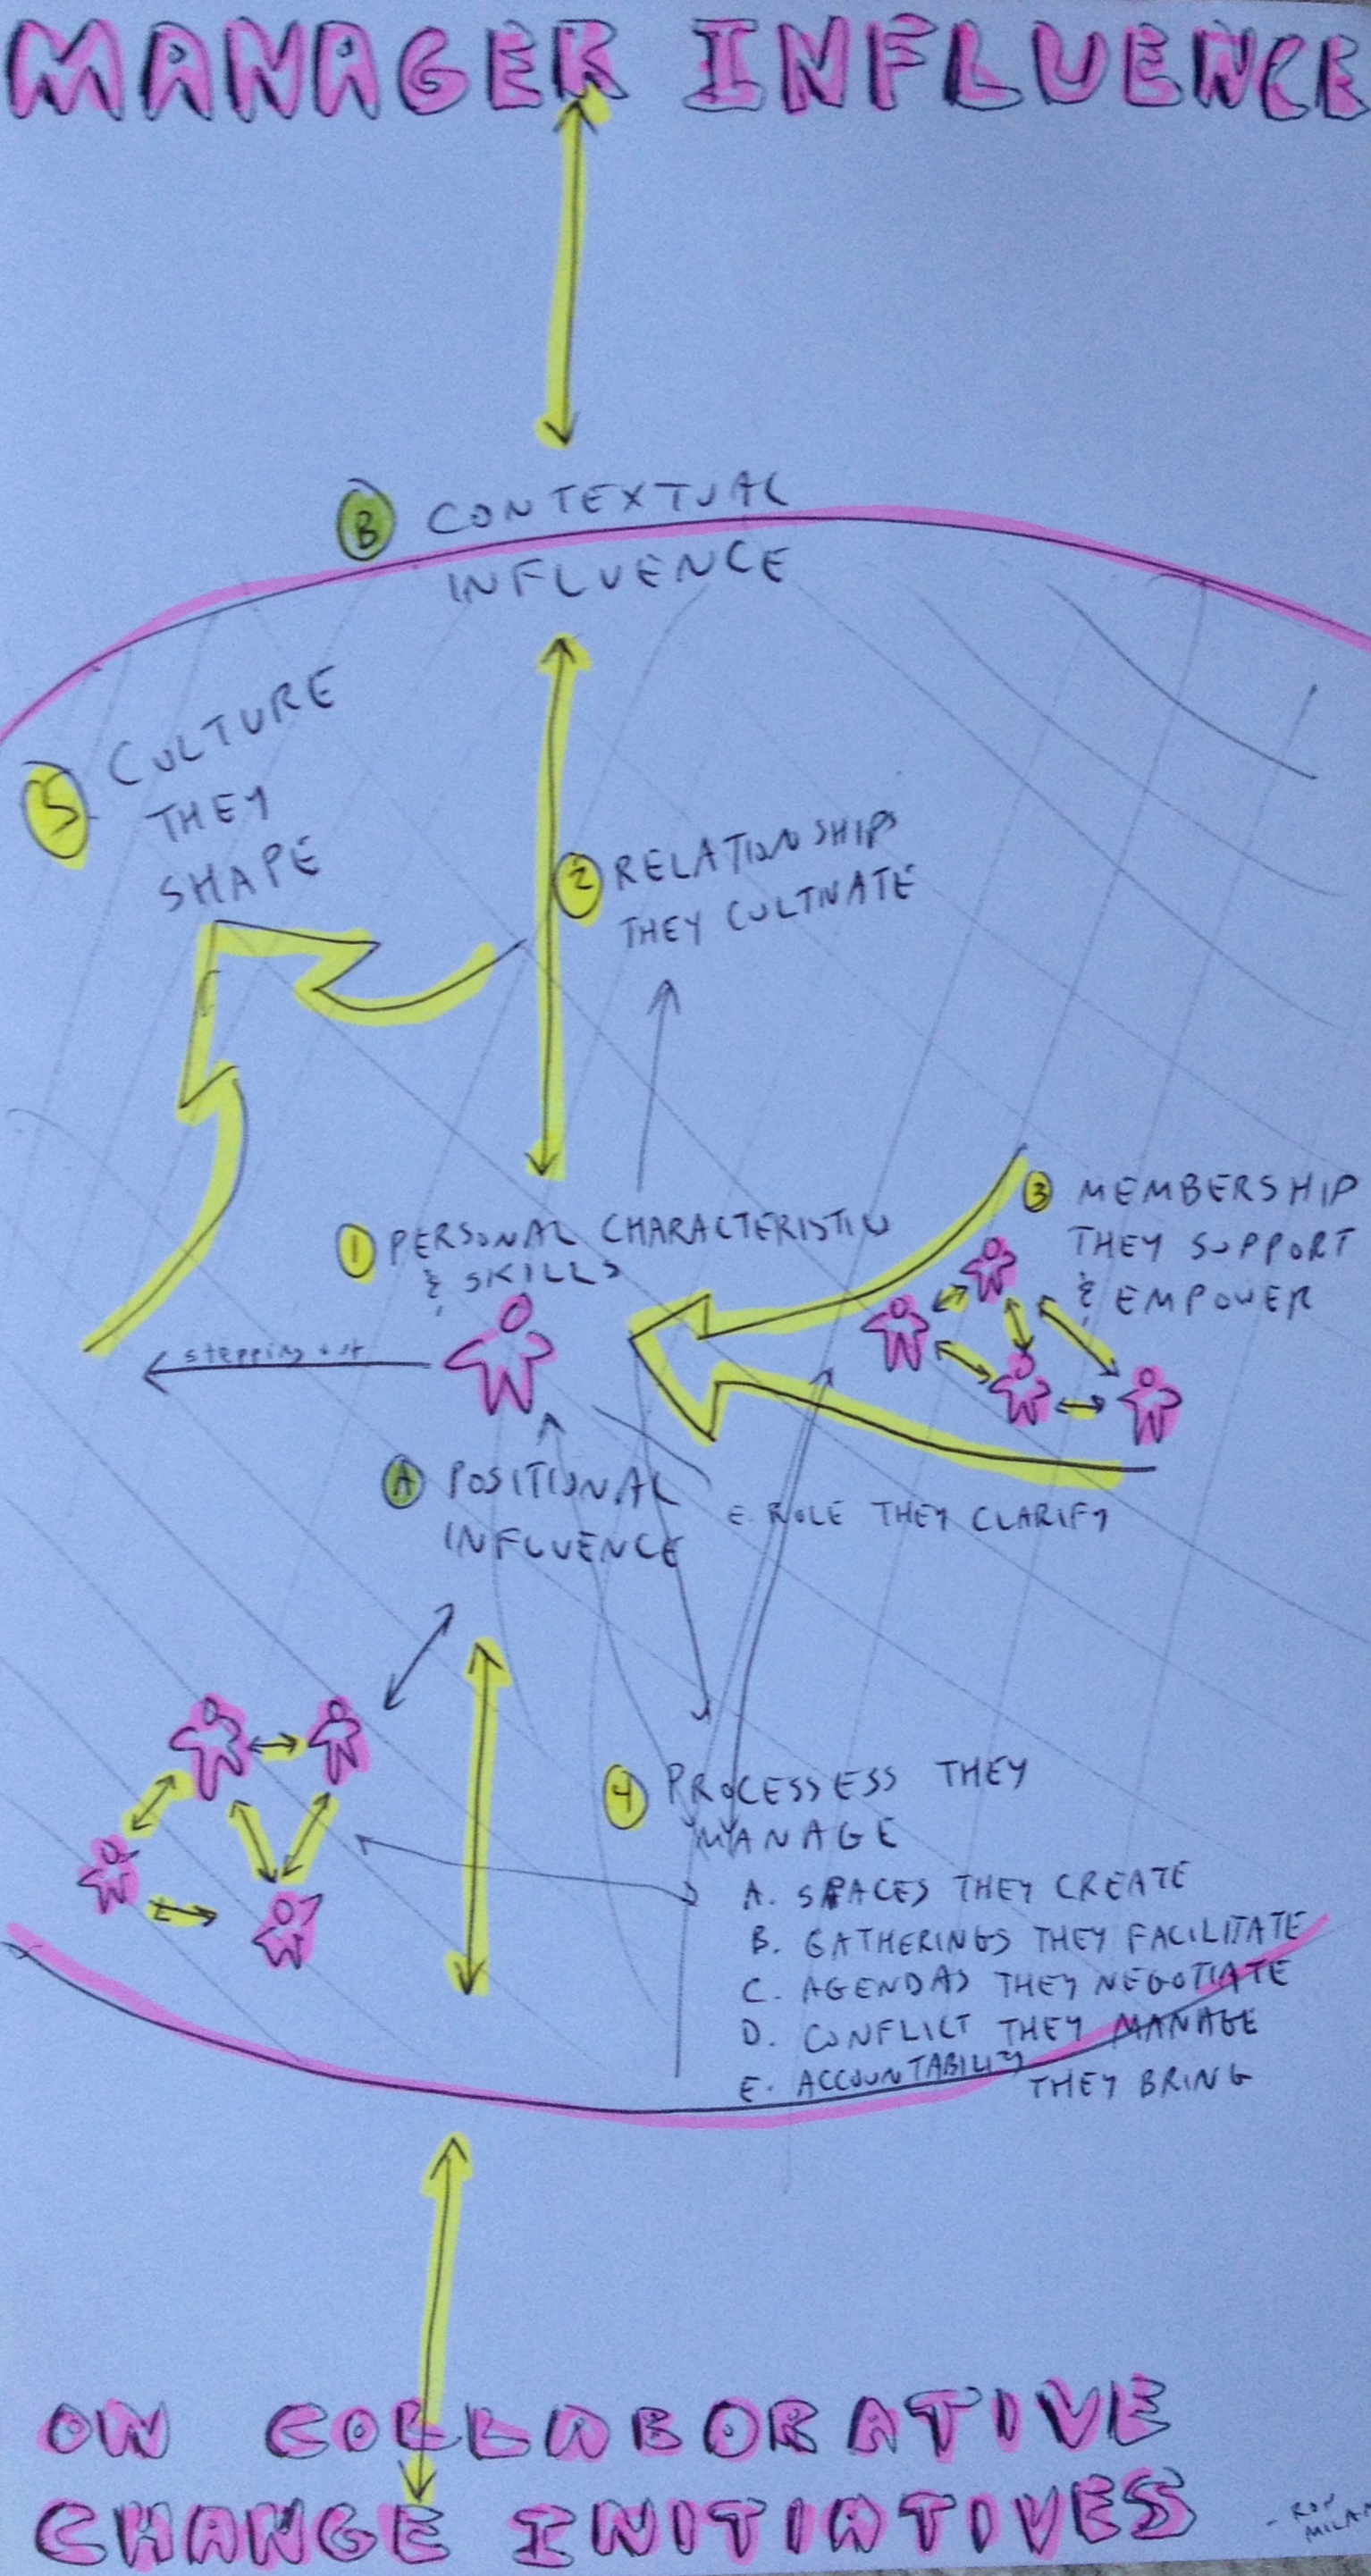 MANAGER INFLUENCE
B CONTEXTUAL
INFLUENCE
5 CULTURE
THEY
SHAPE
2 RELATIONSHIPS
THEY CULTIVATE
1 PERSONAL CHARACTERISTICS
& SKILLS
3 MEMBERSHIP
THEY SUPPORT
& EMPOWER
stepping out
A POSITIONAL
INFLUENCE
E. ROLE THEY CLARIFY
4 PROCESSESS THEY
MANAGE
A. SPACES THEY CREATE
B. GATHERINGS THEY FACILITATE
C. AGENDAS THEY NEGOTIATE
D. CONFLICT THEY MANAGE
E. ACCOUNTABILITY THEY BRING
ON COLLABORATIVE
CHANGE INITIATIVES